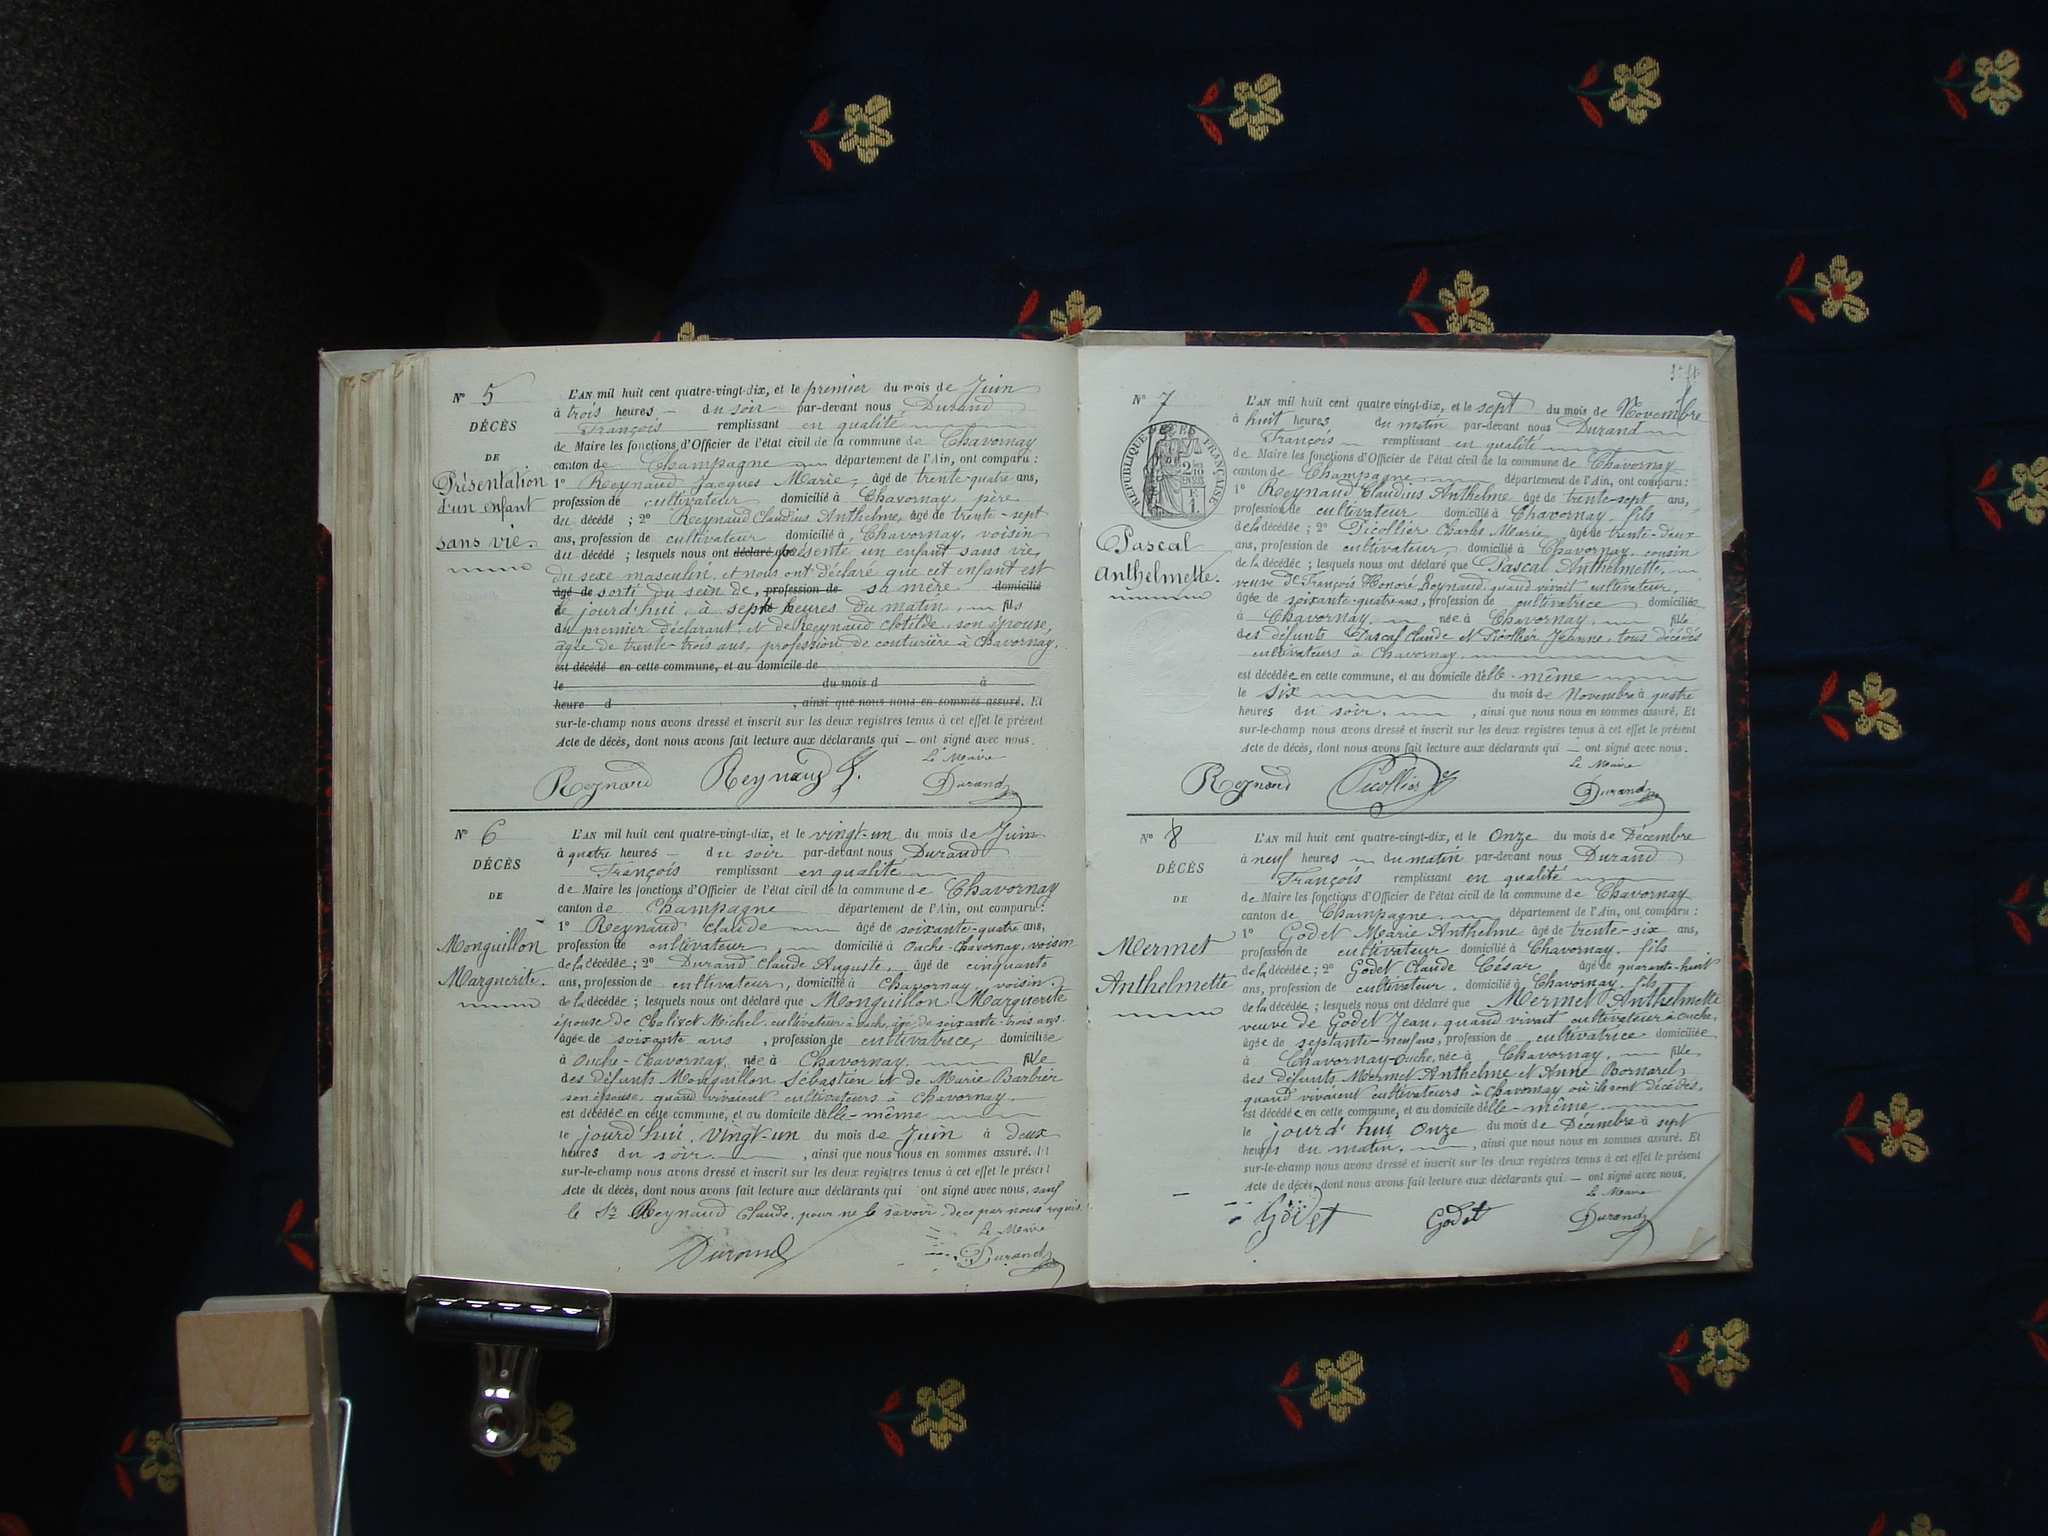 N° 5
DÉCÈS
DE
Présentation
d'un enfant
sans vie.
L'AN mil huit cent quatre-vingt-dix, et le premier du mois de Juin
à trois heures — du soir par-devant nous Durand
François remplissant en qualité
de Maire les fonctions d'Officier de l'état civil de la commune de Chavornay
canton de Champagne département de l'Ain, ont comparu :
1° Reynaud Jacques Marie, âgé de trente-quatre ans,
profession de cultivateur domicilié à Chavornay, père
du décédé ; 2° Reynaud Claudius Anthelme, âgé de trente-sept
ans, profession de cultivateur domicilié à Chavornay, voisin
du décédé ; lesquels nous ont déclaré que présenté un enfant sans vie,
du sexe masculin, et nous ont déclaré que cet enfant est
âgé de sorti du sein de, profession de sa mère domicilié
le jourd'hui, à sept heures du matin, fils
du premier déclarant, et de Reynaud Clotilde, son épouse,
âgée de trente-trois ans, profession de couturière à Chavornay.
est décédé en cette commune, et au domicile de
le du mois d à
heure d , ainsi que nous nous en sommes assuré. Et
sur-le-champ nous avons dressé et inscrit sur les deux registres tenus à cet effet le présent
Acte de décès, dont nous avons fait lecture aux déclarants qui — ont signé avec nous.
Le Maire
Reynaud Reynaud J. Durand
N° 6
DÉCÈS
DE
Monguillon
Marguerite.
L'AN mil huit cent quatre-vingt-dix, et le vingt-un du mois de Juin
à quatre heures — du soir par-devant nous Durand
François remplissant en qualité
de Maire les fonctions d'Officier de l'état civil de la commune de Chavornay
canton de Champagne département de l'Ain, ont comparu :
1° Reynaud Claude âgé de soixante-quatre ans,
profession de cultivateur, domicilié à Ouche-Chavornay, voisin
de la décédée ; 2° Durand Claude Auguste, âgé de cinquante
ans, profession de cultivateur, domicilié à Chavornay, voisin
de la décédée ; lesquels nous ont déclaré que Monguillon Marguerite
épouse de Michel, cultivateur à Ouche, âgé de soixante-trois ans.
âgée de soixante ans , profession de cultivatrice, domiciliée
à Ouche-Chavornay, née à Chavornay, fille
des défunts Monguillon Sébastien et de Marie Barbier
son épouse, quand vivaient cultivateurs à Chavornay.
est décédée en cette commune, et au domicile d'elle-même
le jourd'hui, vingt-un du mois de Juin à deux
heures du soir , ainsi que nous nous en sommes assuré. Et
sur-le-champ nous avons dressé et inscrit sur les deux registres tenus à cet effet le présent
Acte de décès, dont nous avons fait lecture aux déclarants qui ont signé avec nous, sauf
le Sr Reynaud Claude, pour ne le savoir, de ce par nous requis.
Le Maire
Durand Durand
N° 7
RÉPUBLIQUE FRANÇAISE
Pascal
Anthelmette.
L'AN mil huit cent quatre-vingt-dix, et le sept du mois de Novembre
à huit heures du matin par-devant nous Durand
François remplissant en qualité
de Maire les fonctions d'Officier de l'état civil de la commune de Chavornay
canton de Champagne département de l'Ain, ont comparu :
1° Reynaud Claudius Anthelme âgé de trente-sept ans,
profession de cultivateur domicilié à Chavornay, fils
de la décédée ; 2° Picollier Charles Marie, âgé de trente-deux
ans, profession de cultivateur, domicilié à Chavornay, cousin
de la décédée ; lesquels nous ont déclaré que Pascal Anthelmette,
veuve de François Honoré Reynaud, quand vivait cultivateur,
âgée de soixante-quatre ans, profession de cultivatrice domiciliée
à Chavornay, née à Chavornay, fille
des défunts Pascal Claude et Picollier Jeanne, tous décédés
cultivateurs à Chavornay.
est décédée en cette commune, et au domicile d'elle-même
le six du mois de Novembre à quatre
heures du soir, , ainsi que nous nous en sommes assuré. Et
sur-le-champ nous avons dressé et inscrit sur les deux registres tenus à cet effet le présent
Acte de décès, dont nous avons fait lecture aux déclarants qui — ont signé avec nous.
Le Maire
Reynaud Picollier Durand
N° 8
DÉCÈS
DE
Mermet
Anthelmette
L'AN mil huit cent quatre-vingt-dix, et le Onze du mois de Décembre
à neuf heures du matin par-devant nous Durand
François remplissant en qualité
de Maire les fonctions d'Officier de l'état civil de la commune de Chavornay
canton de Champagne, département de l'Ain, ont comparu :
1° Godet Marie Anthelme âgé de trente-six ans,
profession de cultivateur domicilié à Chavornay, fils
de la décédée ; 2° Godet Claude César âgé de quarante-huit
ans, profession de cultivateur, domicilié à Chavornay, fils
de la décédée ; lesquels nous ont déclaré que Mermet Anthelmette
veuve de Godet Jean, quand vivait cultivateur à Ouche,
âgée de septante-neuf ans, profession de cultivatrice domiciliée
à Chavornay-Ouche, née à Chavornay, fille
des défunts Mermet Anthelme et Anne Bornarel,
quand vivaient cultivateurs à Chavornay où ils sont décédés.
est décédée en cette commune, et au domicile d'elle-même
le jourd'hui onze du mois de Décembre à sept
heures du matin, , ainsi que nous nous en sommes assuré. Et
sur-le-champ nous avons dressé et inscrit sur les deux registres tenus à cet effet le présent
Acte de décès, dont nous avons fait lecture aux déclarants qui — ont signé avec nous.
Le Maire
Godet Godet Durand